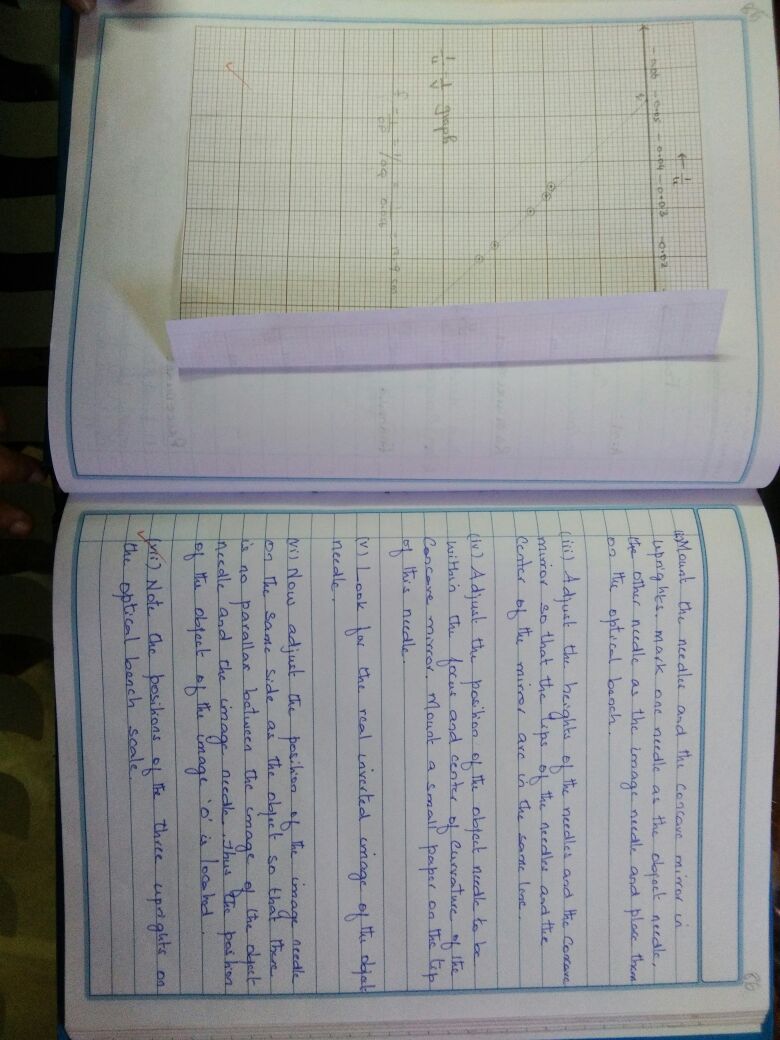 (ii) Mount the needles and the concave mirror in
uprights. mark one needle as the object needle,
the other needle as the image needle and place them
on the optical bench.
(iii) Adjust the heights of the needles and the concave
mirror so that the tips of the needles and the
center of the mirror are in the same line.
(iv) Adjust the position of the object needle to be
within the focus and center of curvature of the
concave mirror. Mount a small paper on the tip
of this needle.
(v) Look for the real inverted image of the object
needle.
(vi) Now adjust the position of the image needle
on the same side as the object so that there
is no parallax between the image of the object
needle and the image needle. Thus the position
of the object of the image 'o' is located.
(vii) Note the positions of the three uprights on
the optical bench scale.
← 1/u
-0.06 -0.05 -0.04 -0.03 -0.02
1/u 1/v graph